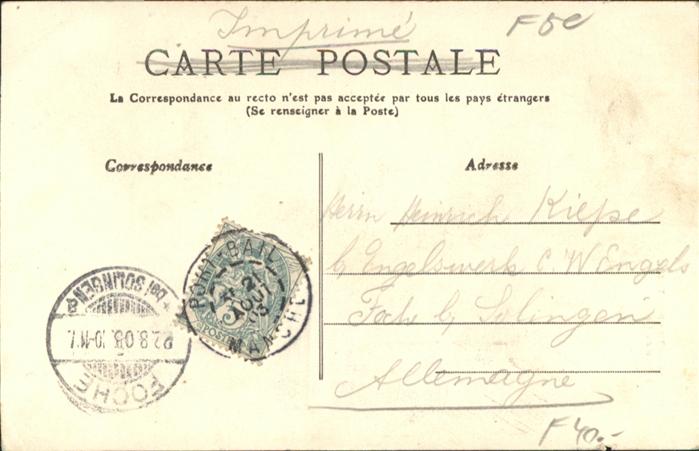 Imprimé
F5e
CARTE POSTALE
La Correspondance au recto n'est pas acceptée par tous les pays étrangers
(Se renseigner à la Poste)
Correspondance
Adresse
Herrn Heinrich Kiepe
b/ Engelswerk C W Engels
Foche b/ Solingen
Allemagne
F40.-
PORT-BAIL
2
AOUT
MANCHE
bei SOLINGEN
22.8.05. 10-11 V.
FOCHE